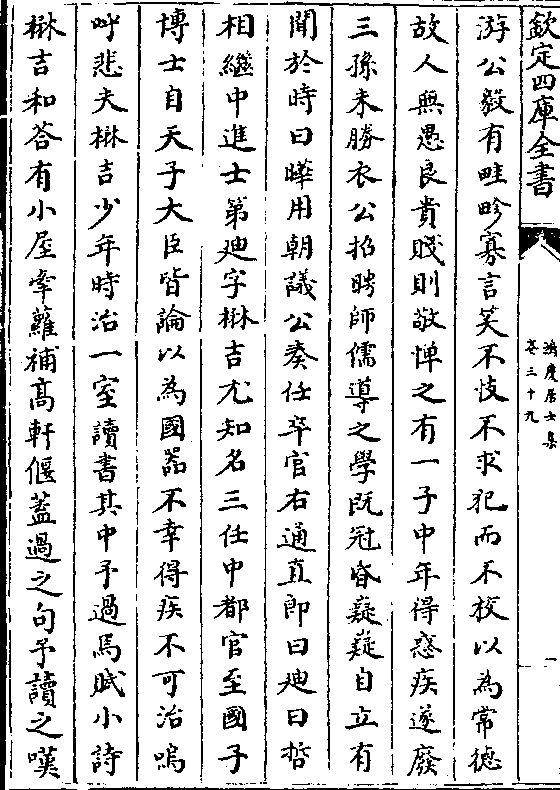 欽定四庫全書
鴻慶居士集
卷三十九
游公毅有畦畛寡言笑不忮不求犯而不校以為常德
故人無愚良貴賤則敬憚之有一子中年得惑疾遂廢
三孫未勝衣公招聘師儒導之學既冠昏嶷嶷自立有
聞於時曰曄用朝議公奏任卒官右通直郎曰迪曰哲
相繼中進士第迪字楙吉尤知名三任中都官至國子
博士自天子大臣皆論以為國器不幸得疾不可治嗚
呼悲夫楙吉少年時治一室讀書其中予過焉賦小詩
楙吉和答有小屋牽蘿補高軒偃蓋過之句予讀之嘆